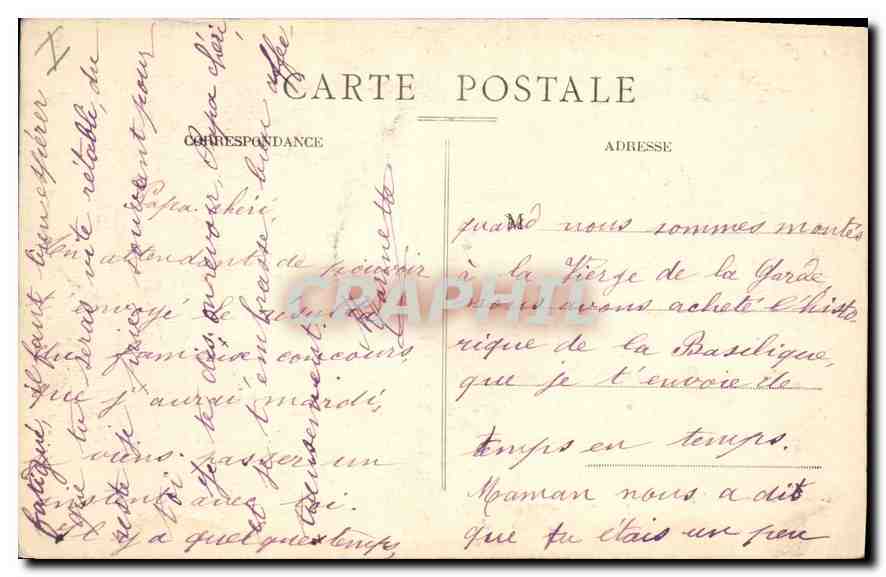 CARTE POSTALE
CORRESPONDANCE
ADRESSE
Papa chéri,
En attendant de pouvoir
t'envoyé le résultat
du fameux concours,
que j'aurai mardi,
je viens passer un
instant avec toi.
Il y a quelque temps,
M
quand nous sommes montés
à la Vierge de la Garde
nous avons acheté l'histo-
rique de la Basilique,
que je t'envoie de
temps en temps.
Maman nous a dit
que tu étais un peu
fatigué, il faut bien espérer
que tu seras vite rétabli, du
reste je prie souvent pour
toi
Je te dis aurevoir Papa chéri
et je t'embrasse bien affec
tueusement.
CRAPHIL
X